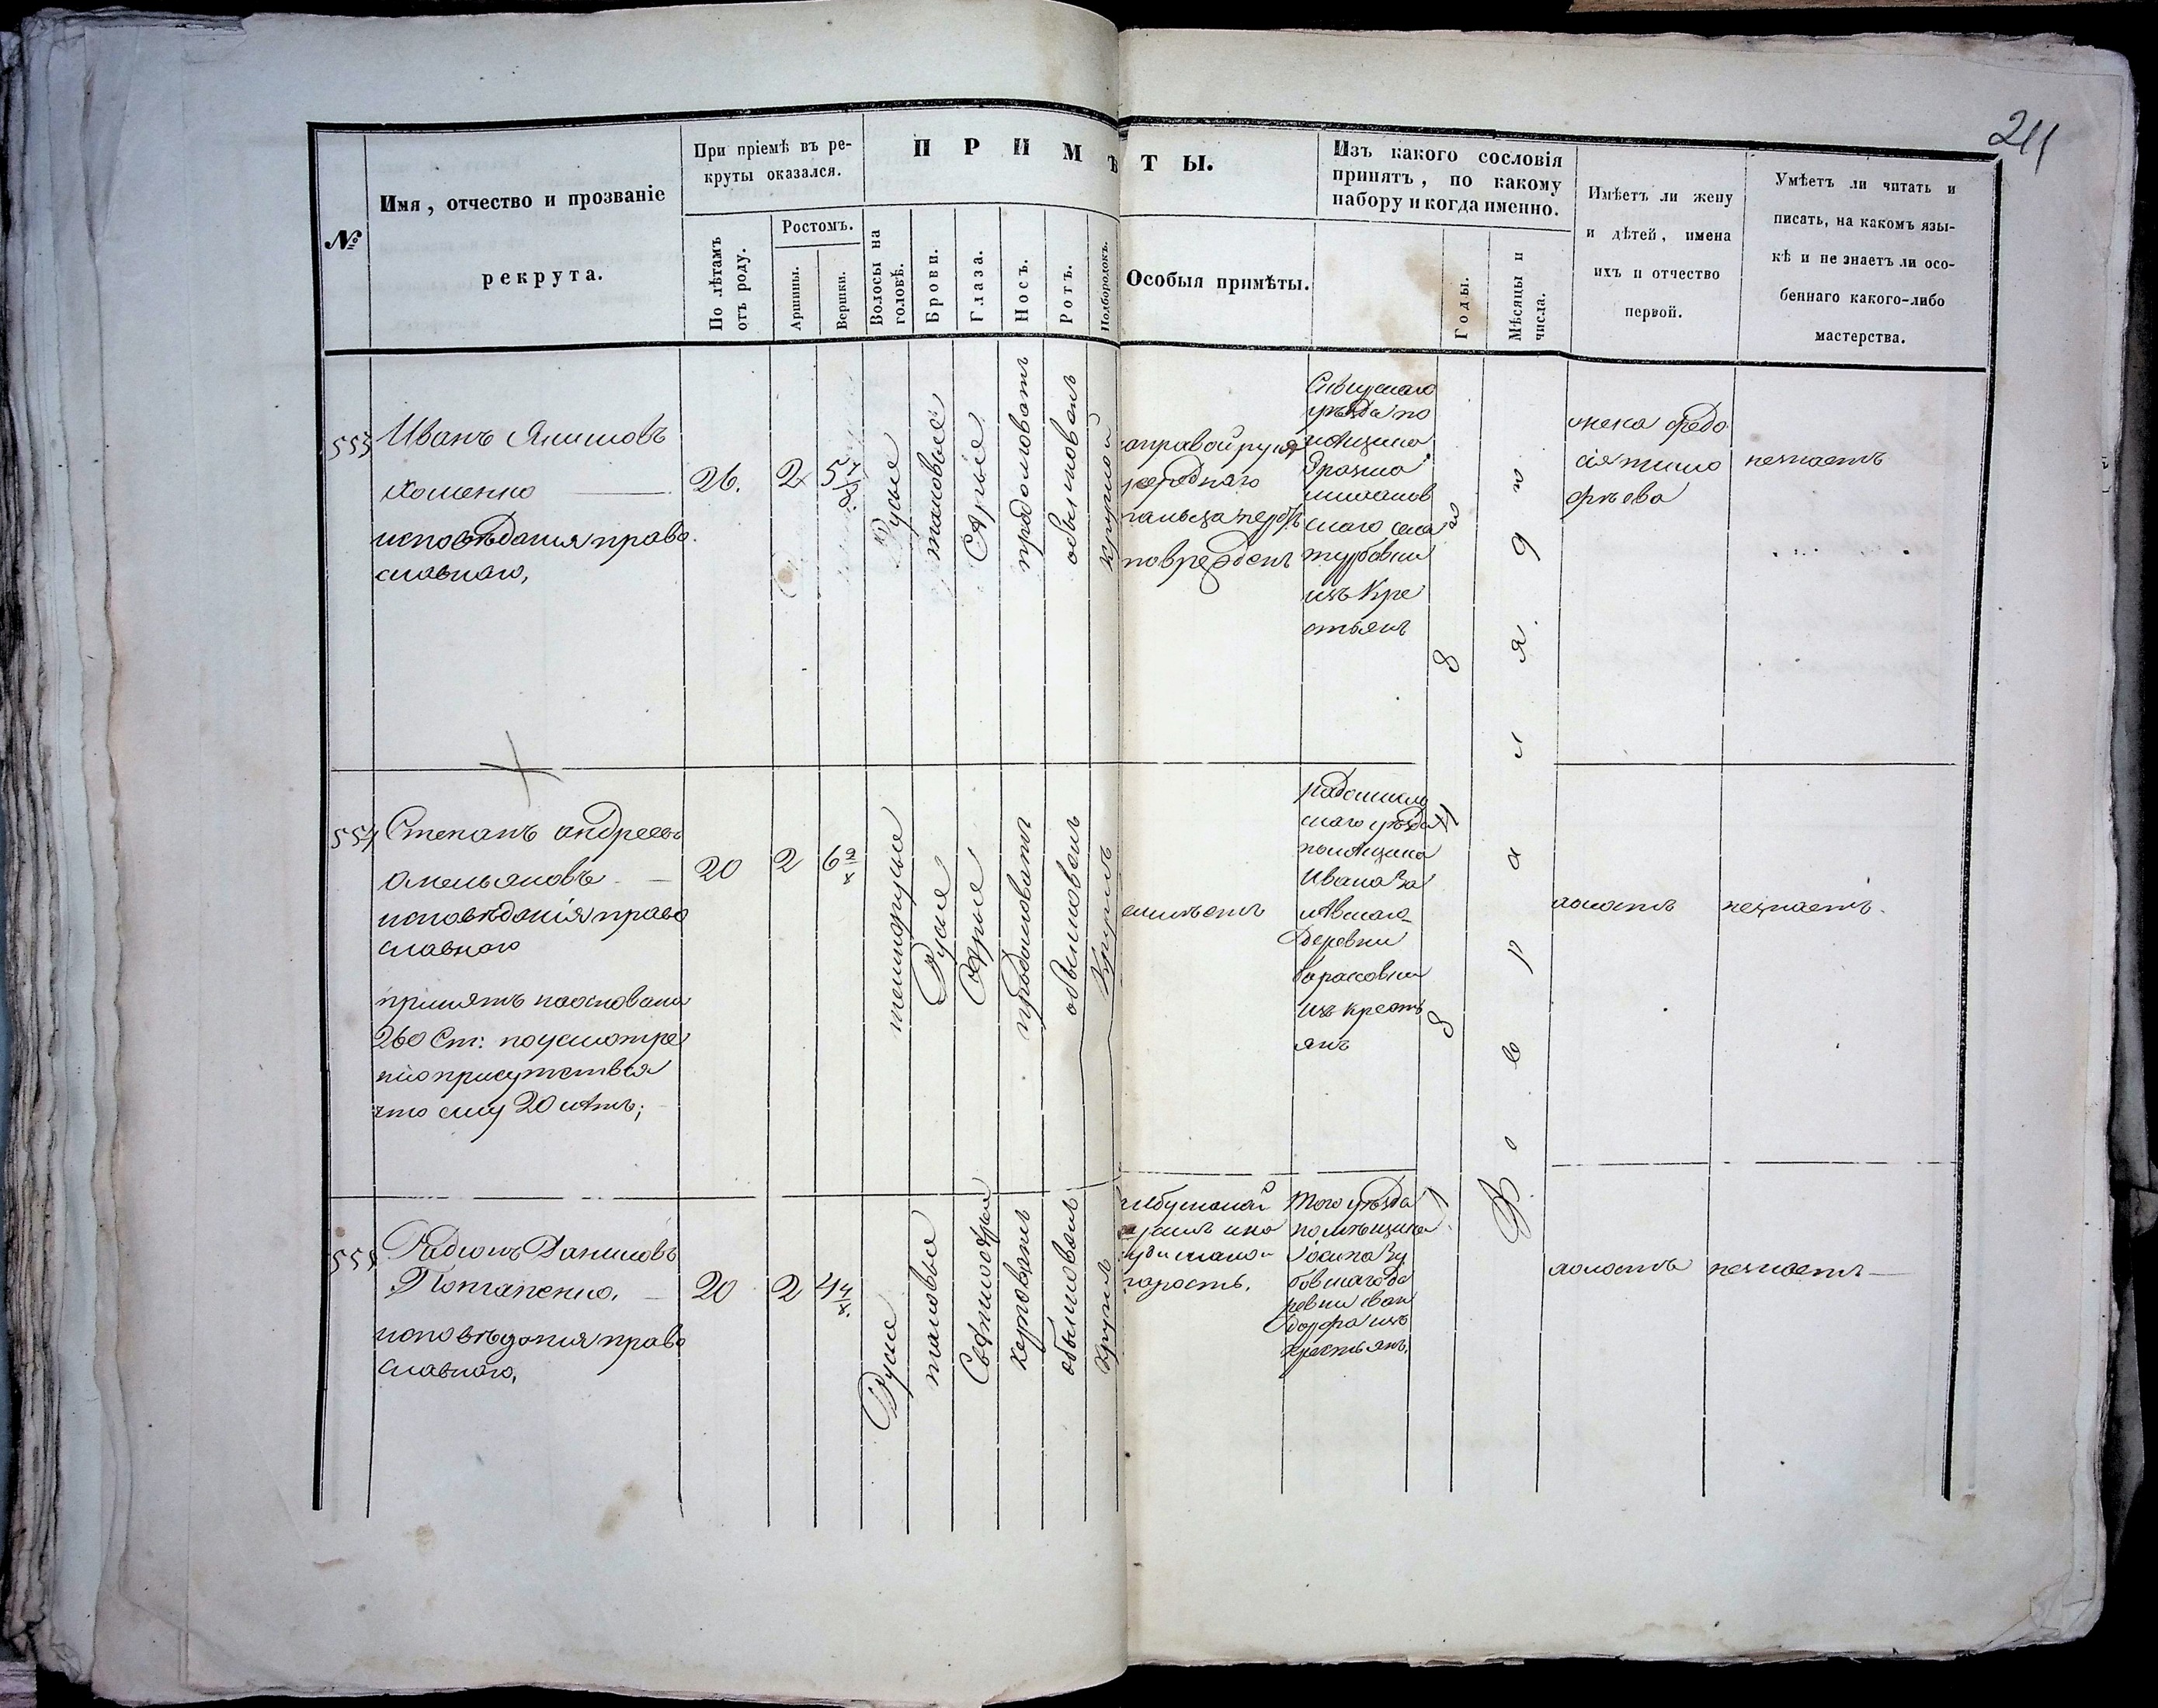 211
№
Имя, отчество и прозваніе
рекрута.
При пріемѣ въ ре-
круты оказался.
По лѣтамъ
отъ роду.
Ростомъ.
Аршины.
Вершки.
ПРИМѢТЫ.
Волосы на
головѣ.
Брови.
Глаза.
Носъ.
Ротъ.
Подбородокъ.
Особыя примѣты.
Изъ какого сословія
принятъ, по какому
набору и когда именно.
Годы.
Мѣсяцы и
числа.
Имѣетъ ли жену
и дѣтей, имена
ихъ и отчество
первой.
Умѣетъ ли читать и
писать, на какомъ язы-
кѣ и не знаетъ ли осо-
беннаго какого-либо
мастерства.
553
Иванъ Якимовъ
Хоменко
исповѣданія право
славнаго,
26.
2
5 7/8
Русые
таковые
Сѣрые
продолговатъ
обыкновенъ
круглой
направой рукѣ
середнаго
пальца
поврежденъ
уѣзда по
мѣщика
села
турбовки
изъ Кре
стьянъ
жена Федо
сія тимо
фѣева
незнаетъ
554
Степанъ андреевъ
Омельяновъ
исповѣданія право
славного
принятъ наоснованіи
260 Ст: поусмотре
нію присутствія
что ему 20 лѣтъ;
20
2
6 2/8
темнорусые
Русые
Сѣрые
продолговатъ
обыкновенъ
Круглъ
неимѣетъ
радомысль
скаго уѣзда
помѣщика
Ивана За
лѣвскаго
деревни
изъ кресть
янъ
холостъ
незнаетъ.
555
Радионъ Даниловъ
Потапенко.
исповѣданія право
славнаго,
20
2
4 4/8
Русые
таковые
Свѣтлосѣрые
обыкновенъ
круглъ
Того уѣзда
помѣщика
Іосипа Зу
бовскаго де
ревни
изъ
крестьянъ.
холостъ
незнаетъ
8
8
Февраля 9